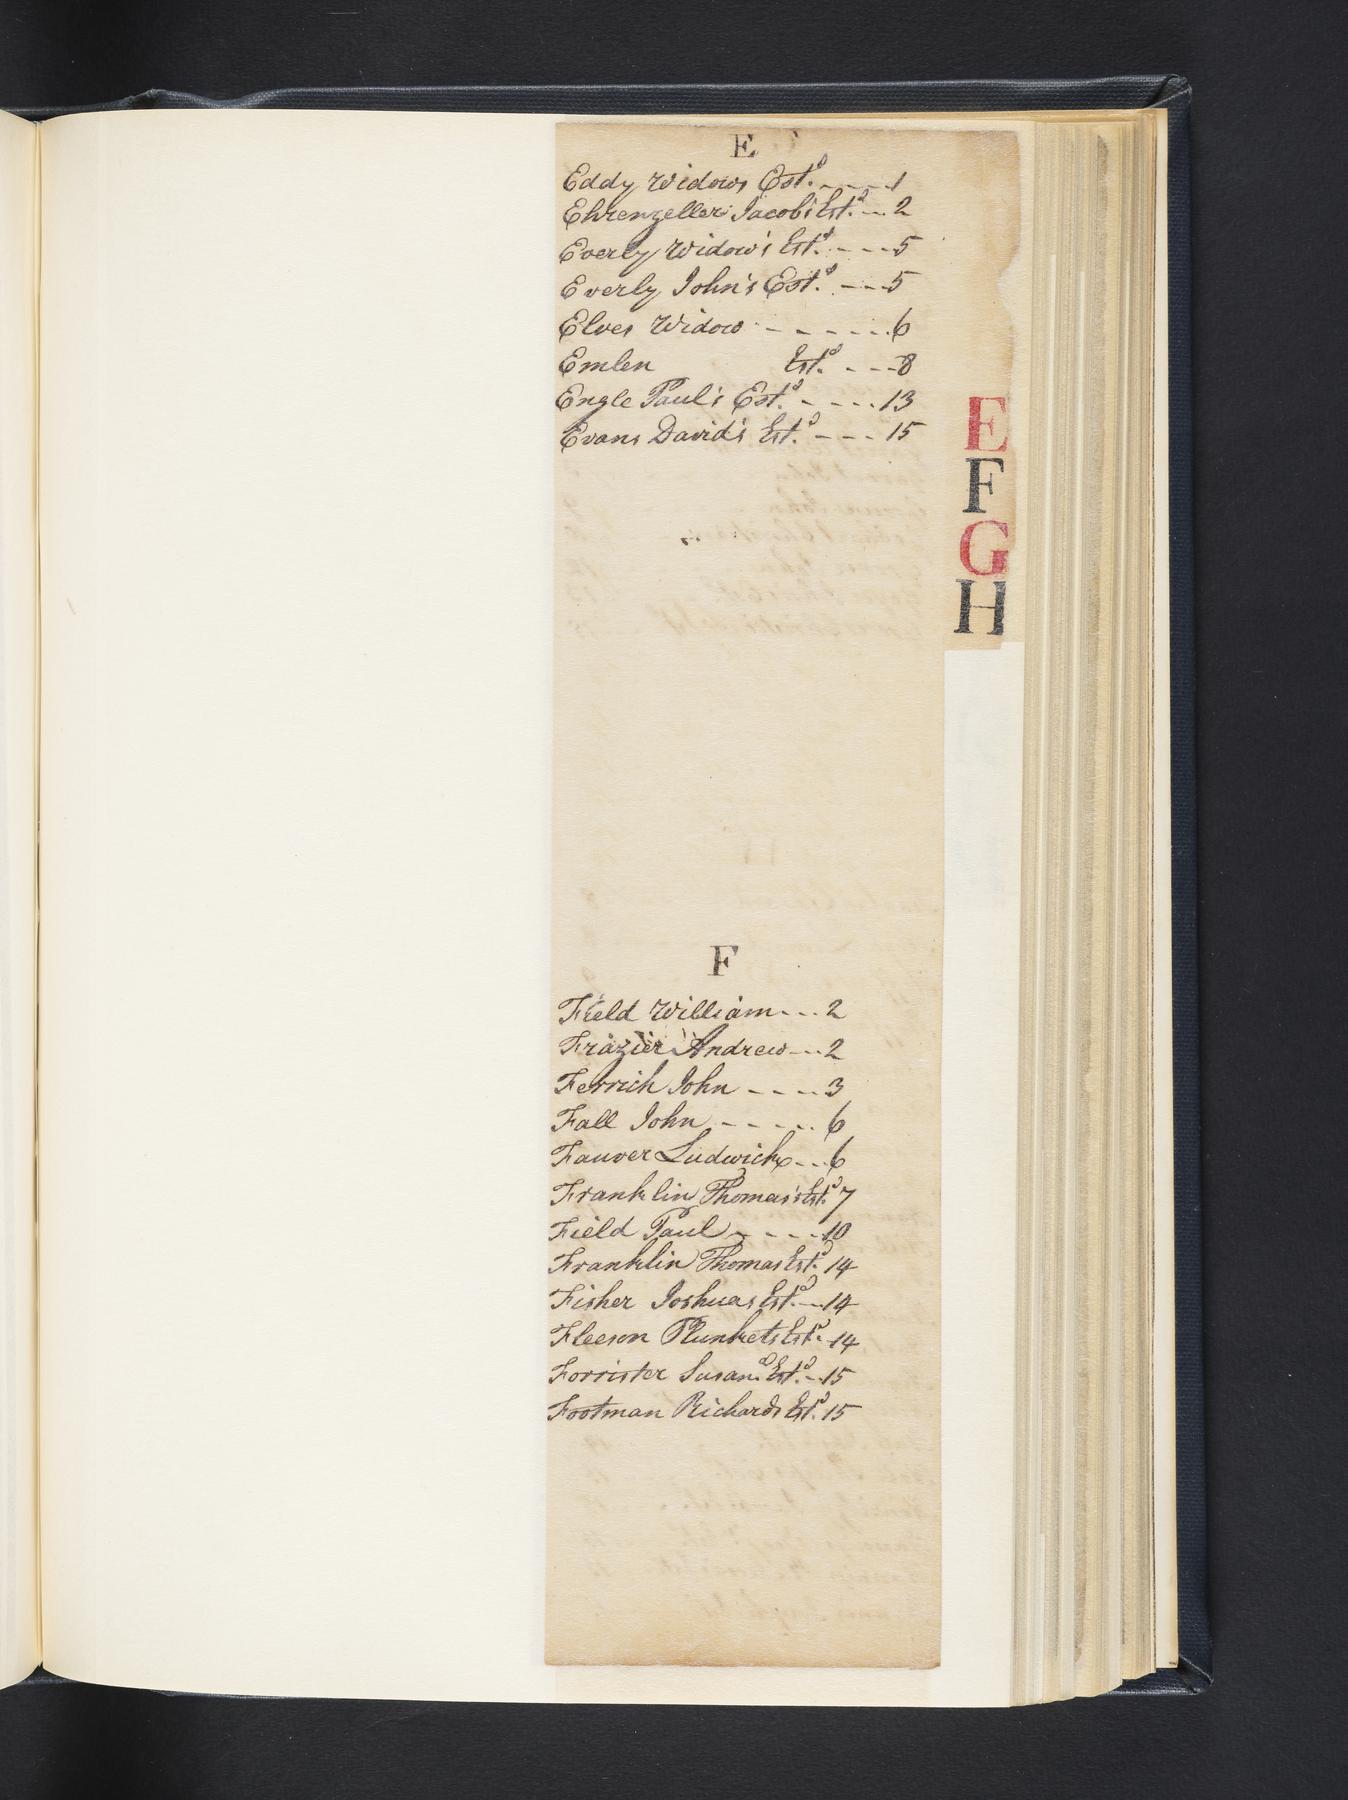 E
Eddy Widows Estd. - - - - 1
Ehrenzeller Jacob's Estd. - - 2
Everly Widow's Estd. - - - 5
Everly John's Estd. - - - 5
Elves Widow - - - - - - 6
Emlen Estd. - - - 8
Engle Paul's Estd. - - - - 13
Evans David's Estd. - - - 15
E
F
G
H
F
Field William - - - 2
Frazier Andrew - - - 2
Ferrich John - - - - 3
Fall John - - - - - 6
Fauver Ludwick - - - 6
Franklin Thomas's Estd. 7
Field Paul - - - - - 10
Franklin Thomas Estd. 14
Fisher Joshuas Estd. - - 14
Fleeson Plunkets Estd. - 14
Forrister Susand. Estd. - 15
Footman Richards Estd. 15